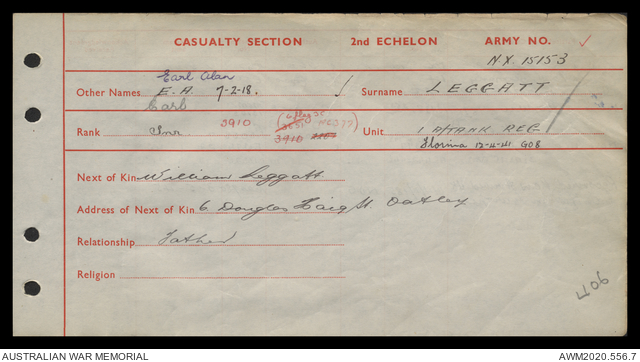 CASUALTY SECTION 2nd ECHELON ARMY NO. ✓
NX 15153
Earl Alan
Other Names E.A. 7-2-18. ✓ Surname LEGGATT
Earl
Rank Gnr 3910 3910 Unit 1 A/TANK REG
Florina 12-4-41 G08
Next of Kin William Leggatt
Address of Next of Kin 6 Douglas Haig St. Oatley
Relationship Father
Religion
406
AUSTRALIAN WAR MEMORIAL AWM2020.556.7